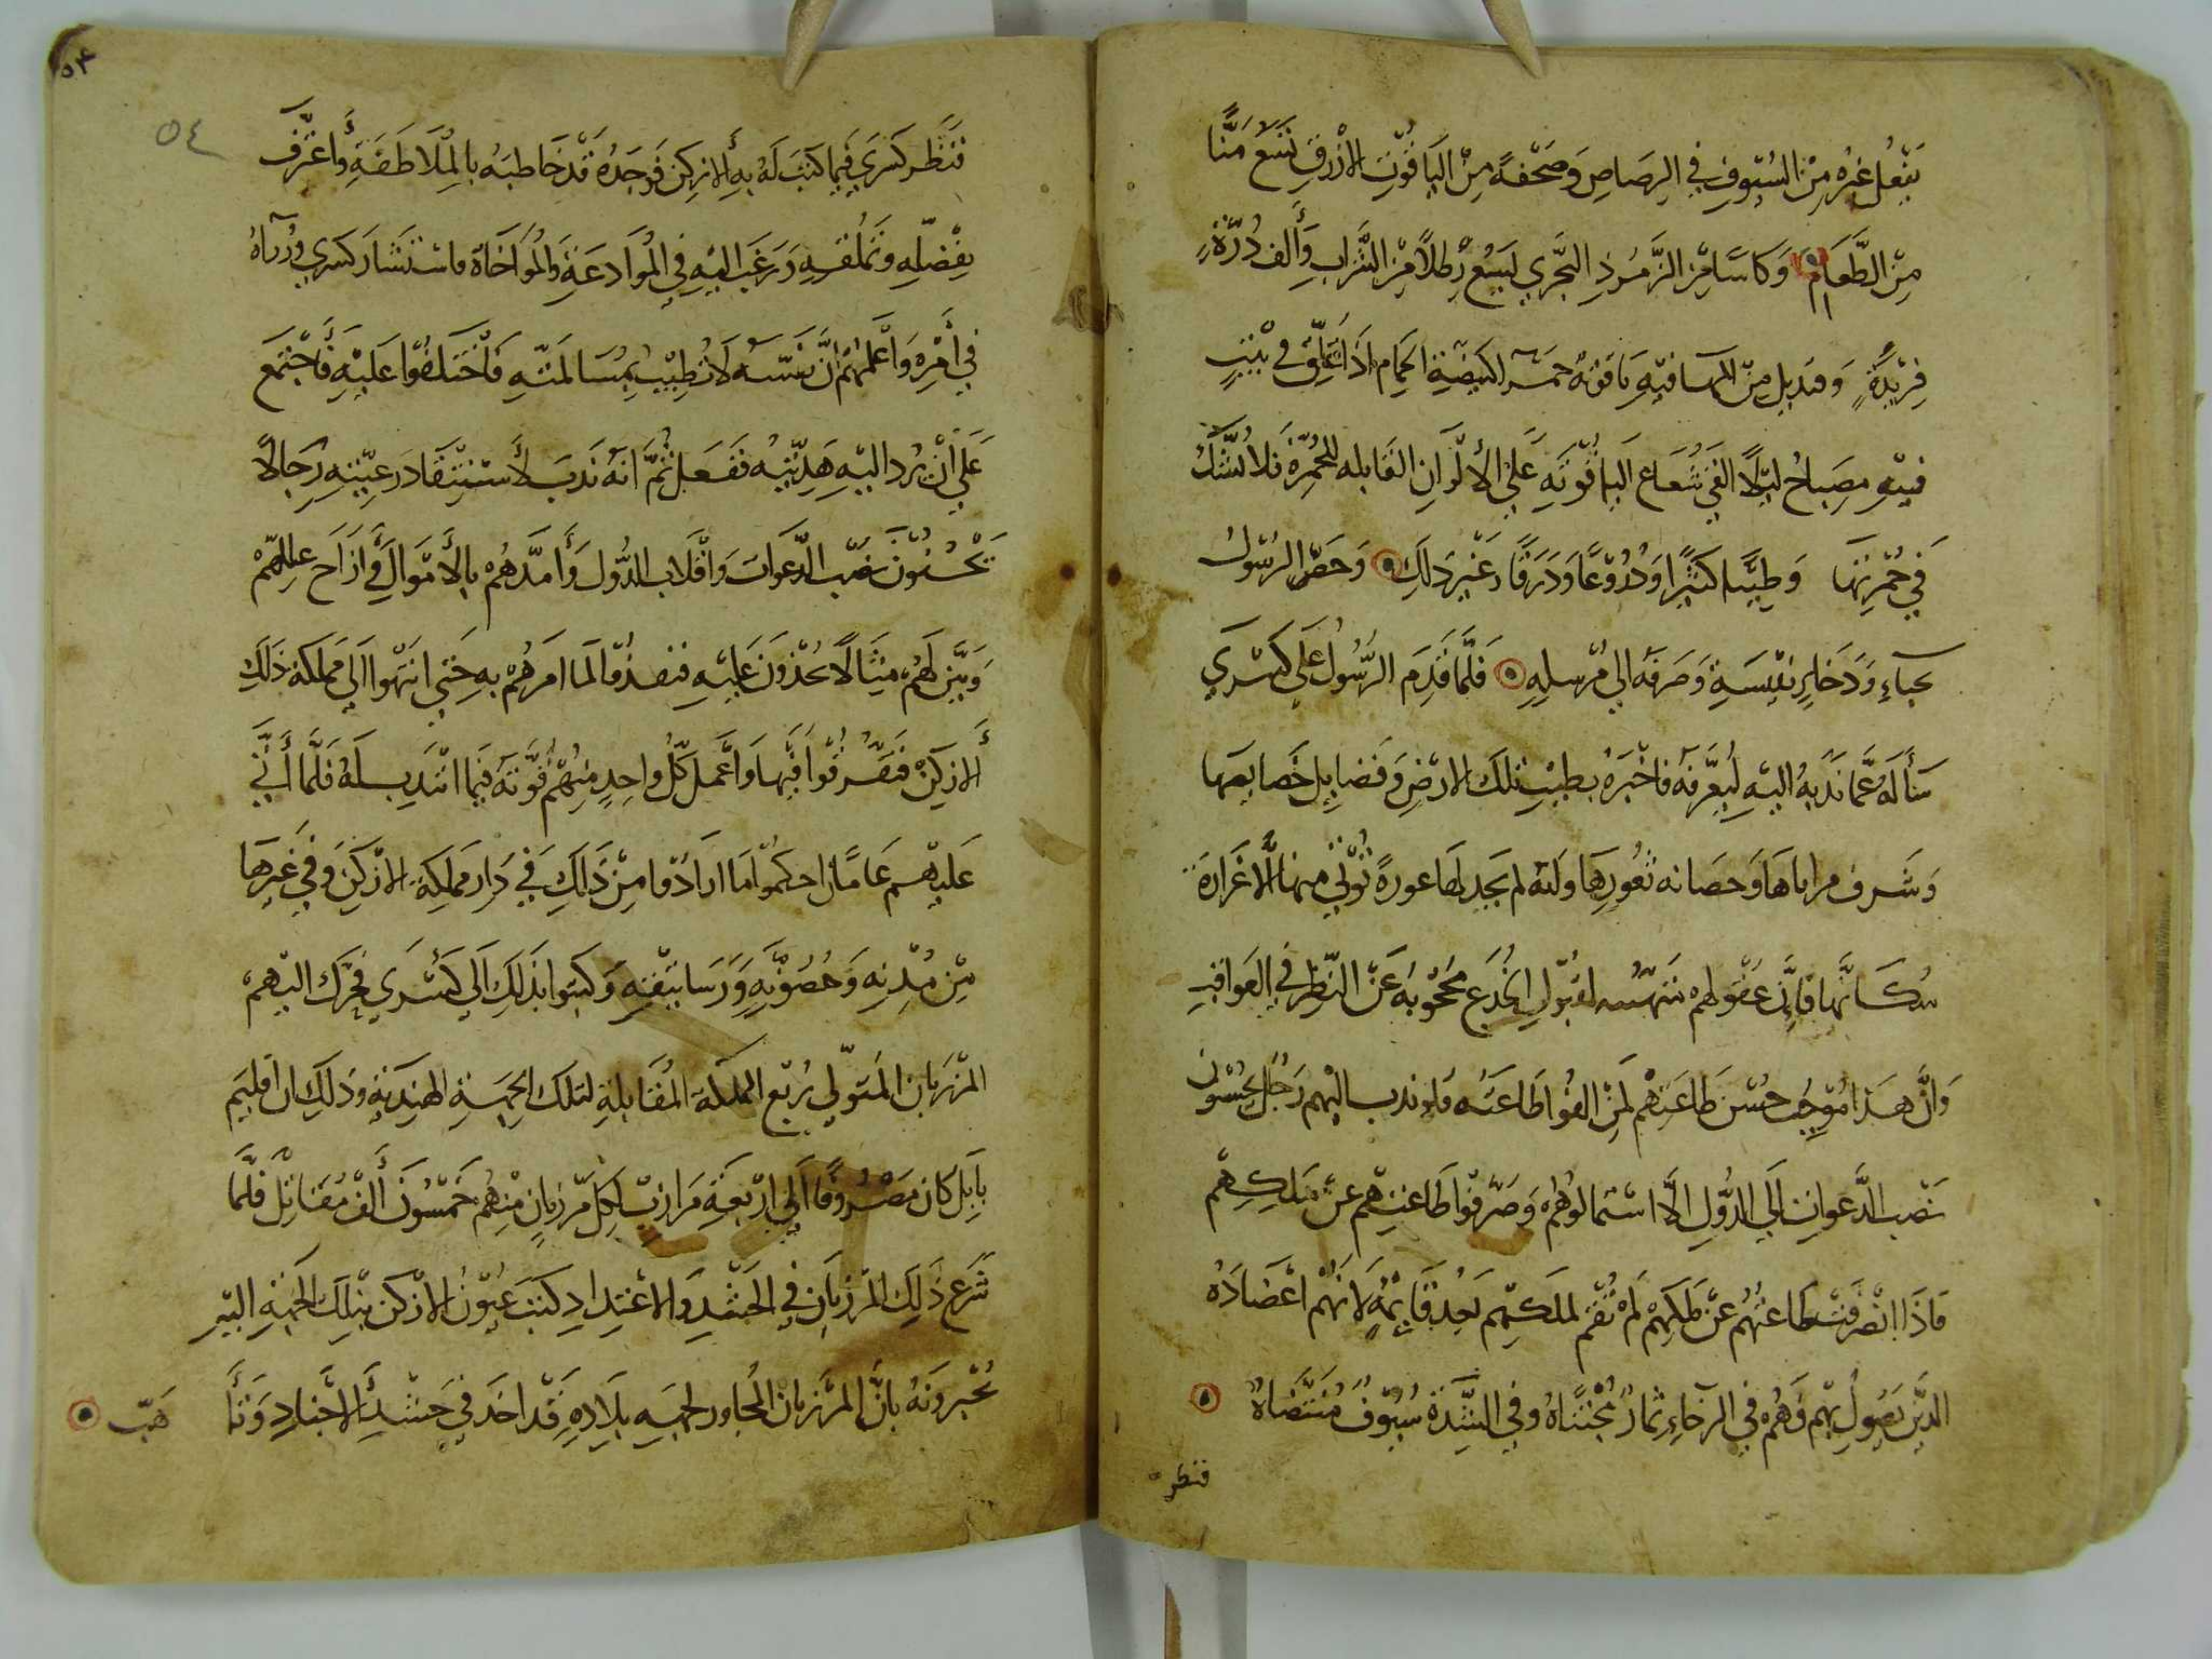 يفعل غيره من السيوف في الرصاص وصحفة من الياقوت الازرق تسع منًّا
من الطعام وكاسًا من الزمرد البحري ليسع رطلًا من الشراب وألف درة
فريدة وقنديل من المها فيه ياقوتة حمرا كبيضة الحمام اذا علق في بيت
فيه مصباح ليلًا القى شعاع الياقوتة على الالوان القابله للحمرة فلا نشك
في حمرتها وطيبا كثيرًا ودروعًا ودرقًا وغير ذلك وحض الرسول
بحباء وذخاير نفيسة وصرفه الى مرسله فلما قدم الرسول على كسرى
سأله عما ندبه اليه ليعرفه فاخبره بطيب تلك الارض وفضايل خصايصها
وشرف مراياها وحصانه ثغورها وانه لم يجد لها عورة تؤتى منها الا غرارة
سكانها فان عقولهم لقبول الخدع محجوبه عن النظر في العواقب
وان هذا موجب حسن طاعتهم لمن الفوا طاعته فلو ندب اليهم رجال يحسنون
نصب الدعوات الى الدول الا استمالوهم وصرفوا طاعتهم عن ملكهم
فاذا انصرفت طاعتهم عن ملكهم لم تقم لملكهم بعد قايمة لانهم اعضاده
الذين يصول بهم وهم في الرخاء ثمار مجتناة وفي الشدة سيوف منتضاة
فنظر
٥٤
٥٤
فنظر كسرى فيما كتب له به الازكن فوجده قد خاطبه بالملاطفة واعترف
بفضله وتملقه ورغب اليه في الموادعة والمواخاة فاستشار كسرى وزراه
في أمره واعلمهم ان نفسه لا تطيب بمسالمته فاختلفوا عليه فاجتمع
على ان يرد اليه هديته ففعل ثم انه ندب لأستفساد رعيته رجالًا
يحسنون نصب الدعوات واقلاب الدول وأمدهم بالأموال وأزاح عللهم
وبين لهم مثالًا يحذون عليه فنفذوا لما امرهم به حتى انتهوا الى مملكة ذلك
ألازكن فتفرقوا فيها واعمل كل واحد منهم قوته فيما انتدب له فلما أتى
عليهم عامان احكموا ما ارادوا من ذلك في دار مملكة الازكن وفي غيرها
من مدنه وحصونه ورساتيقه وكتبوا بذلك الى كسرى فحرك اليهم
المرزبان المتولي ربع المملكة المقابلة لتلك الجهة الهندية وذلك ان اقليم
بابل كان مصروفًا الى اربعة مرازبة لكل مرزبان منهم خمسون ألف مقاتل فلما
شرع ذلك المرزبان في الحشد والاعتداد كتب عيون الازكن بتلك الجهة اليه
يخبرونه بان المرزبان المجاور لجهة بلاده قد اخذ في حشد الاجناد وتأ
هب